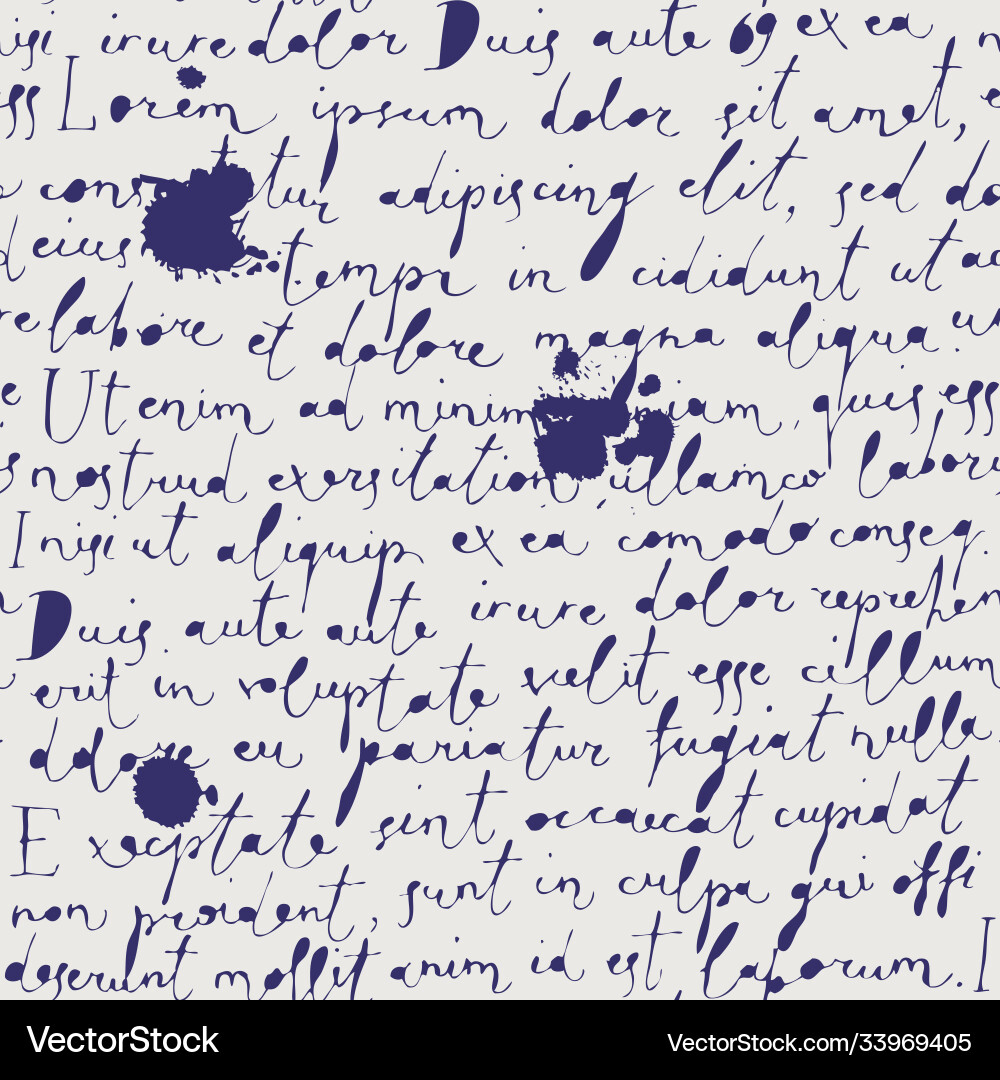 irure dolor Duis aute ex ea
Lorem ipsum dolor sit amet,
adipiscing elit, sed do
eius tempr in cididunt ut
labore et dolore magna aliqua.
Ut enim ad minim quis
nostrud exersitation ullamco
I nisi ut aliquip ex ea comodo conseq.
Duis aute aute irure dolor
erit in voluptate velit esse cillum
dolore eu pariatur fugiat nulla
Execptate sint occaecat cupidat
non proident, sunt in culpa qui offi
deserunt mollit anim id est laborum. I
VectorStock VectorStock.com/33969405